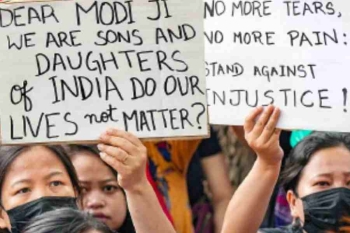 DEAR MODI JI
WE ARE SONS AND
DAUGHTERS
of INDIA DO OUR
LIVES not MATTER?
NO MORE TEARS,
NO MORE PAIN:
STAND AGAINST
INJUSTICE!